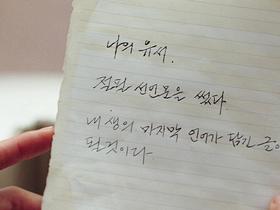 나의 유서.
절필 선언문을 썼다
내 생의 마지막 언어가 담긴 글이
될 것이다